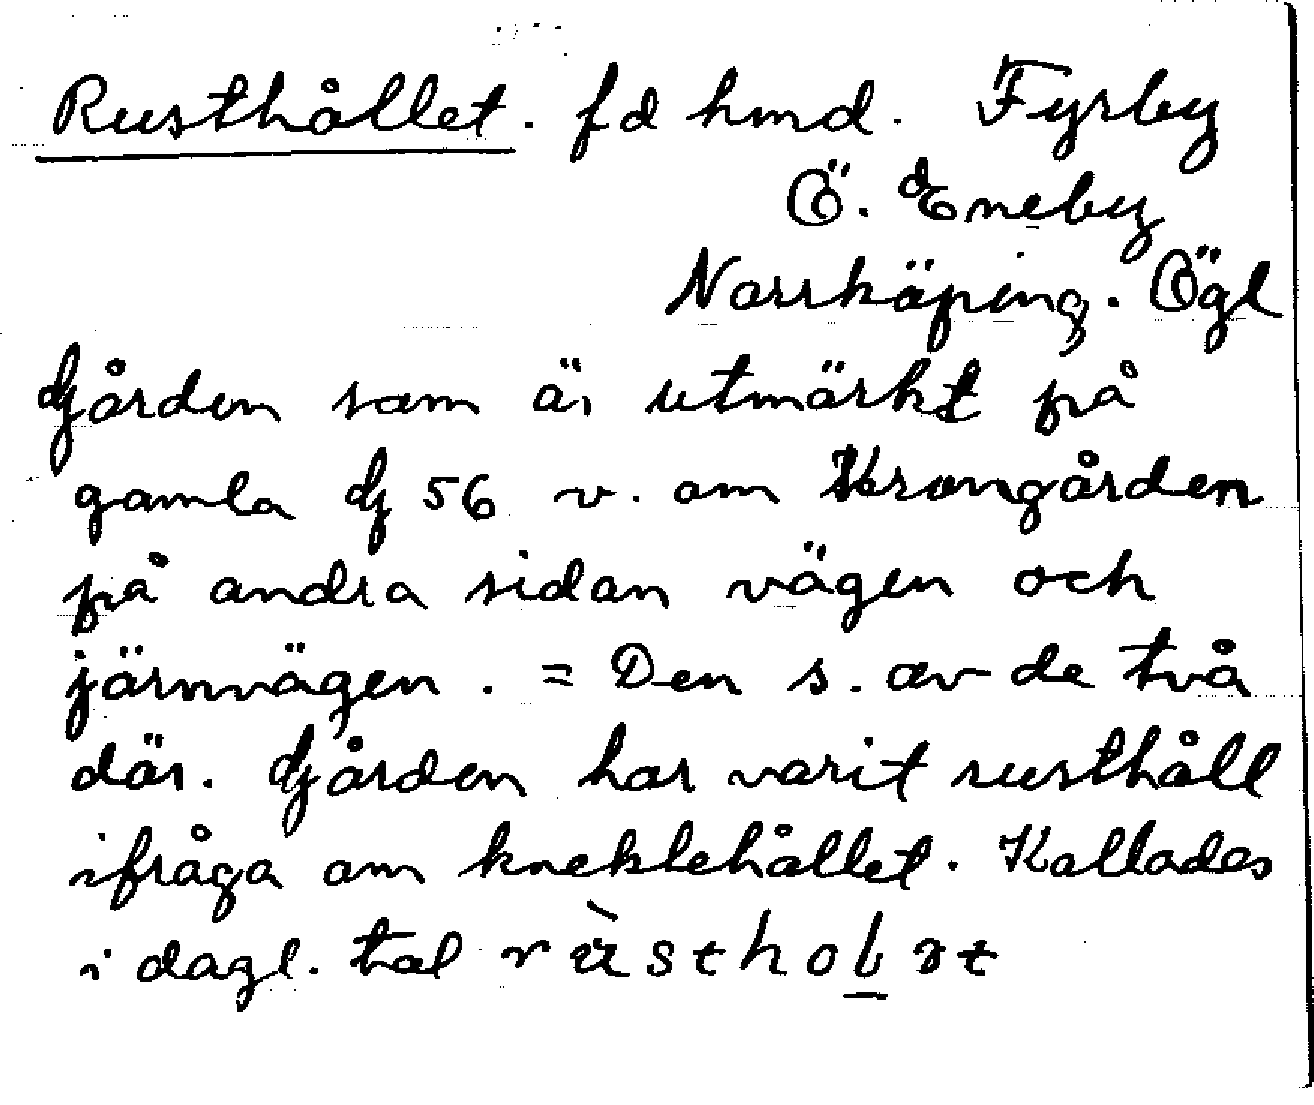 Rusthållet. fd hmd. Fyrby
Ö. Eneby
Norrköping. Ögl
Gården som är utmärkt på
gamla G 56 v. om Krongården
på andra sidan vägen och
järnvägen. = Den s. av de två
där. Gården har varit rusthåll
ifråga om knektehållet. Kallades
i dagl. tal